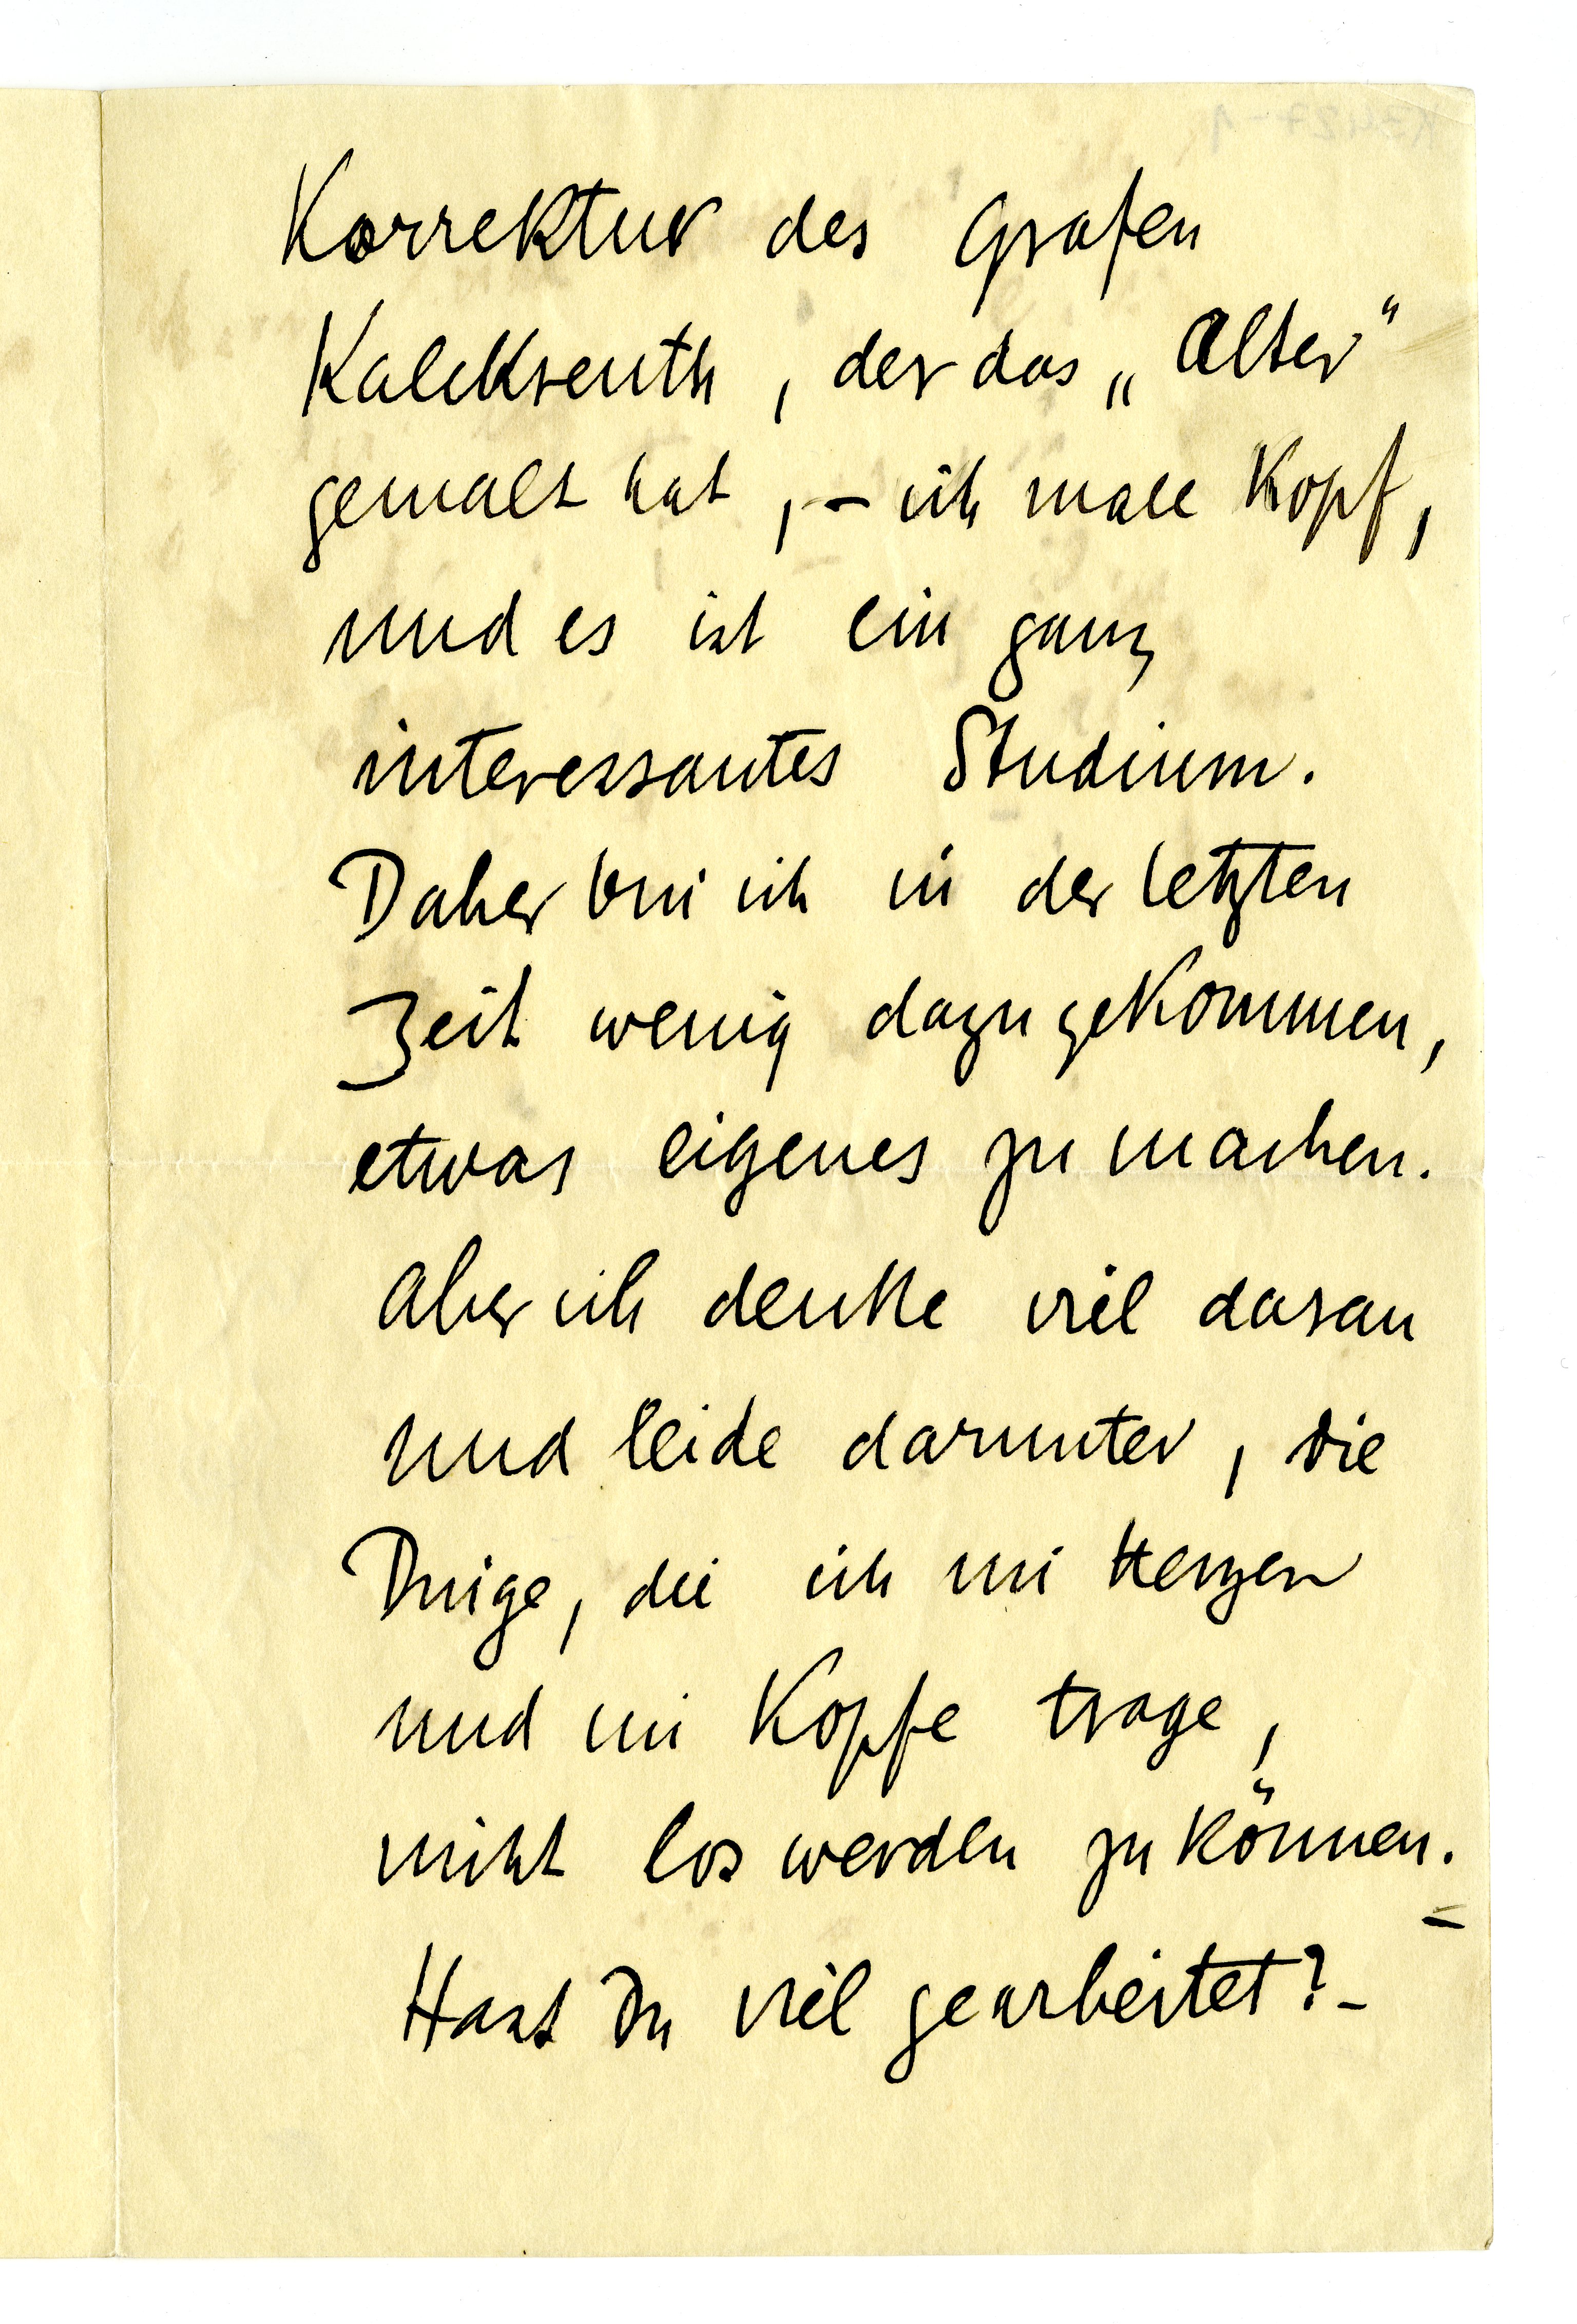 Korrektur des Grafen
Kalckreuth, der das „Alter“
gemalt hat, – ich male Kopf,
und es ist ein ganz
interessantes Studium.
Daher bin ich in der letzten
Zeit wenig dazu gekommen,
etwas eigenes zu machen.
Aber ich denke viel daran
und leide darunter, die
Dinge, die ich im Herzen
und im Kopfe trage,
nicht los werden zu können. –
Hast Du viel gearbeitet? –